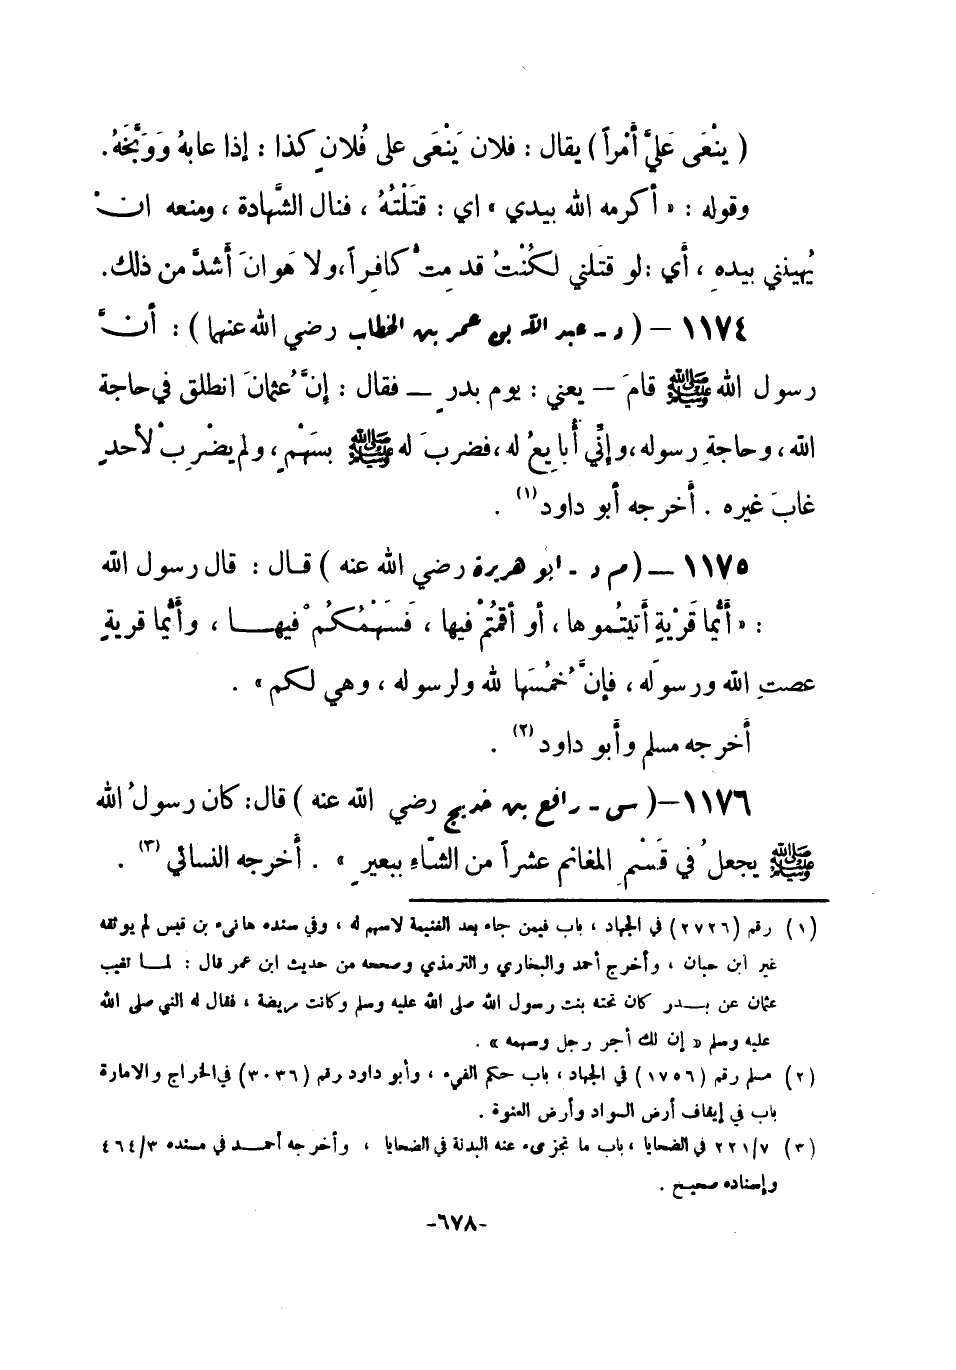 ( يَنْعَى عَلَيَّ أَمْراً ) يقال : فلان يَنْعَى على فُلانٍ كذا : إذا عابهُ وَوَبَّخَهُ.
وقوله : « أكرمه الله بيدي » اي : قتَلْتُهُ ، فنال الشَّهادة ، ومنعه انْ
يُهينني بيدهِ ، أَي : لو قتَلني لكُنْتُ قد مِتُّ كافِراً، ولا هَوانَ أَشدَّ من ذلك.
١١٧٤ – ( د - عبد الله بن عمر بن الخطاب رضي الله عنهما ) : أنَّ
رسول الله ﷺ قامَ – يعني : يوم بدرٍ – فقال : إنَّ عُثمانَ انطلق في حاجة
الله ، وحاجةِ رسوله ، وإنِّي أُبايعُ له ، فضربَ له ﷺ بسَهْمٍ ، ولم يضْرِبْ لأحدٍ
غابَ غيره . أَخرجه أبو داود (١) .
١١٧٥ – ( م د - ابو هريرة رضي الله عنه ) قـال : قال رسول الله
: « أَيُّما قَرْيةٍ أَتيتُموها ، أو أقمْتُمْ فيها ، فَسَهْمُكُمْ فيهــا ، وأَيُّما قريةٍ
عصتِ الله ورسولَه ، فإنَّ خُمُسَها لله ولرسوله ، وهي لكم » .
أَخرجه مسلم وأَبو داود (٢) .
١١٧٦ – ( س - رافع بن خديج رضي الله عنه ) قال : كان رسولُ الله
ﷺ يجعلُ في قَسْمِ المغانم عشراً من الشَّاء ببعيرٍ » . أَخرجه النسائي (٣) .
(١) رقم (٢٧٢٦) في الجهاد ، باب فيمن جاء بعد الغنيمة لاسهم له ، وفي سنده هانىء بن قيس لم يوثقه
غير ابن حبان ، وأخرج أحمد والبخاري والترمذي وصححه من حديث ابن عمر قال : لمـا تغيب
عثمان عن بـدر كان تحته بنت رسول الله صلى الله عليه وسلم وكانت مريضة ، فقال له النبي صلى الله
عليه وسلم « إن لك أجر رجل وسهمه » .
(٢) مسلم رقم (١٧٥٦) في الجهاد ، باب حكم الفيء ، وأبو داود رقم (٣٠٣٦) في الخراج والامارة
باب في إيقاف أرض السواد وأرض العنوة .
(٣) ٢٢١/٧ في الضحايا ، باب ما تجزىء عنه البدنة في الضحايا ، وأخرجه أحمـد في مسنده ٤٦٤/٣
وإسناده صحيح .
-٦٧٨-